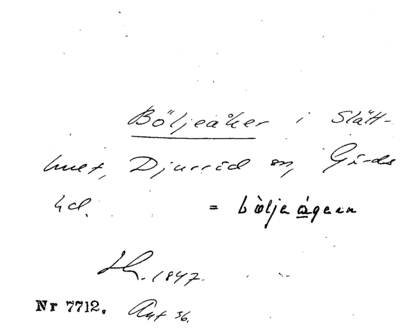 Böljeåker i Slätt-
huet, Djurröd sn, Gärds
hd. = böljeågern
1847.
Nr 7712. Ant 36.